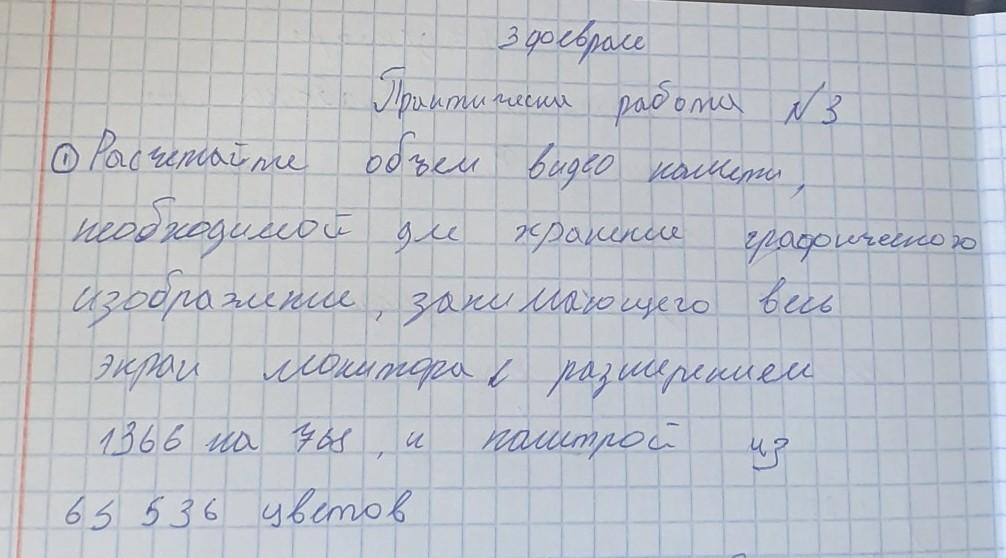 3 февраля
Практическая работа №3
① Расчетайте объем видео памяти,
необходимой для хранение графического
изображение, занимающего весь
экран монитора с разширением
1366 на 768, и палитрой из
65 536 цветов